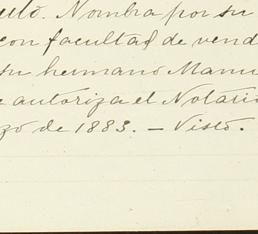 Nombra por su
con facultad de vend
su hermano Manu
autoriza el Notario
zo de 1883. — Visto.